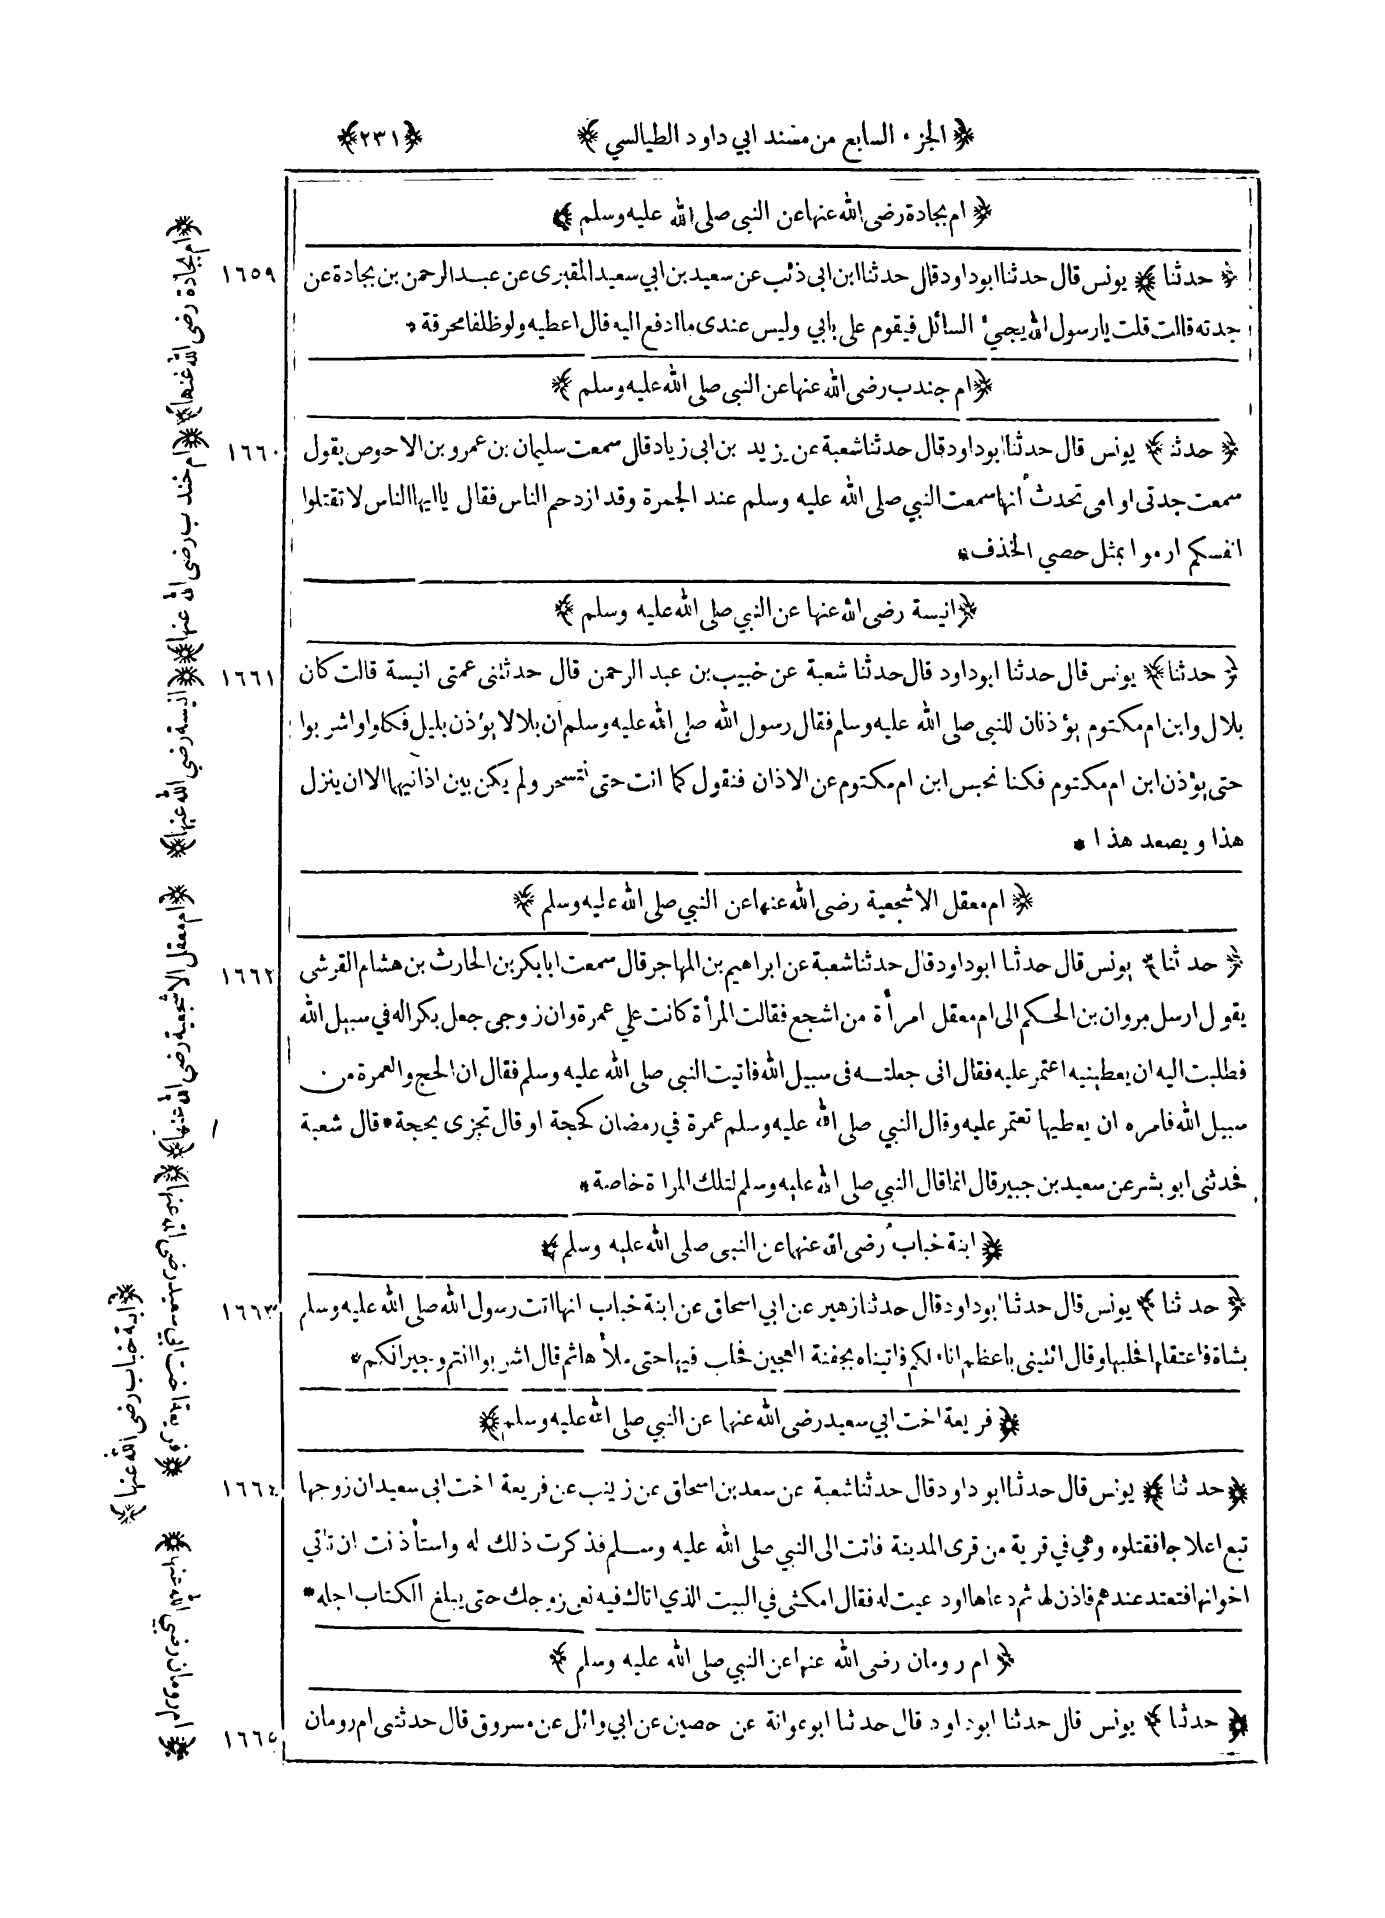 ﴿ الجزء السابع من مسند ابي داود الطيالسي ﴾ ﴿٢٣١﴾
﴿ ام بجادة رضى الله عنها عن النبى صلى الله عليه وسلم ﴾
١٦٥٩ ﴿ حدثنا ﴾ يونس قال حدثنا ابو داود قال حدثنا ابن ابى ذئب عن سعيد بن ابي سعيد المقبرى عن عبد الرحمن بن بجادة عن
جدته قالت قلت يا رسول الله يجيء السائل فيقوم على بابي وليس عندى ما ادفع اليه قال اعطيه ولو ظلفا محرقة *
﴿ ام جندب رضى الله عنها عن النبى صلى الله عليه وسلم ﴾
١٦٦٠ ﴿ حدثنا ﴾ يونس قال حدثنا ابو داود قال حدثنا شعبة عن يزيد بن ابى زياد قال سمعت سليمان بن عمرو بن الاحوص يقول
سمعت جدتى او امى تحدث أنها سمعت النبي صلى الله عليه وسلم عند الجمرة وقد ازدحم الناس فقال يا ايها الناس لا تقتلوا
انفسكم ارموا بمثل حصي الخذف *
﴿ انيسة رضى الله عنها عن النبي صلى الله عليه وسلم ﴾
١٦٦١ ﴿ حدثنا ﴾ يونس قال حدثنا ابو داود قال حدثنا شعبة عن خبيب بن عبد الرحمن قال حدثتنى عمتى انيسة قالت كان
بلال وابن ام مكتوم يؤذنان للنبى صلى الله عليه وسلم فقال رسول الله صلى الله عليه وسلم أن بلالا يؤذن بليل فكلوا واشربوا
حتى يؤذن ابن ام مكتوم فكنا نحبس ابن ام مكتوم عن الاذان فنقول كما انت حتى نتسحر ولم يكن بين اذانيهما الا ان ينزل
هذا ويصعد هذا *
﴿ ام معقل الاشجعية رضى الله عنها عن النبي صلى الله عليه وسلم ﴾
١٦٦٢ ﴿ حدثنا ﴾ يونس قال حدثنا ابو داود قال حدثنا شعبة عن ابراهيم بن المهاجر قال سمعت ابا بكر بن الحارث بن هشام القرشى
يقول ارسل مروان بن الحكم الى ام معقل امرأة من اشجع فقالت المرأة كانت علي عمرة وان زوجى جعل بكرا له في سبيل الله
فطلبت اليه ان يعطينيه اعتمر عليه فقال انى جعلته فى سبيل الله فاتيت النبى صلى الله عليه وسلم فقال ان الحج والعمرة من
سبيل الله فامره ان يعطيها تعتمر عليه وقال النبي صلى الله عليه وسلم عمرة في رمضان كحجة او قال تجزى بحجة * قال شعبة
فحدثنى ابو بشر عن سعيد بن جبير قال انما قال النبي صلى الله عليه وسلم لتلك المراة خاصة *
﴿ ابنة خباب رضى الله عنها عن النبى صلى الله عليه وسلم ﴾
١٦٦٣ ﴿ حدثنا ﴾ يونس قال حدثنا ابو داود قال حدثنا زهير عن ابي اسحاق عن ابنة خباب انها اتت رسول الله صلى الله عليه وسلم
بشاة فاعتقلها فحلبها وقال ائتينى باعظم اناء لكم فاتيناه بجفنة العجين فحلب فيها حتى ملأها ثم قال اشربوا انتم وجيرانكم *
﴿ فريعة اخت ابي سعيد رضى الله عنها عن النبي صلى الله عليه وسلم ﴾
١٦٦٤ ﴿ حدثنا ﴾ يونس قال حدثنا ابو داود قال حدثنا شعبة عن سعد بن اسحاق عن زينب عن فريعة اخت ابى سعيد ان زوجها
تبع اعلاجا فقتلوه وهي في قرية من قرى المدينة فاتت الى النبي صلى الله عليه وسلم فذكرت ذلك له واستأذنت ان تاتي
اخوانها فتعتد عندهم فاذن لها ثم دعاها او دعيت له فقال امكثى في البيت الذي اتاك فيه نعى زوجك حتى يبلغ الكتاب اجله *
﴿ ام رومان رضى الله عنها عن النبي صلى الله عليه وسلم ﴾
١٦٦٥ ﴿ حدثنا ﴾ يونس قال حدثنا ابو داود قال حدثنا ابو عوانة عن حصين عن ابي وائل عن مسروق قال حدثتنى ام رومان
﴿ ام بجادة رضى الله عنها ﴾
﴿ ام جندب رضى الله عنها ﴾
﴿ انيسة رضي الله عنها ﴾
﴿ ام معقل الاشجعية رضى الله عنها ﴾
﴿ ابنة خباب رضى الله عنها ﴾
﴿ فريعة اخت ابي سعيد رضى الله عنها ﴾
﴿ ام رومان رضي الله عنها ﴾